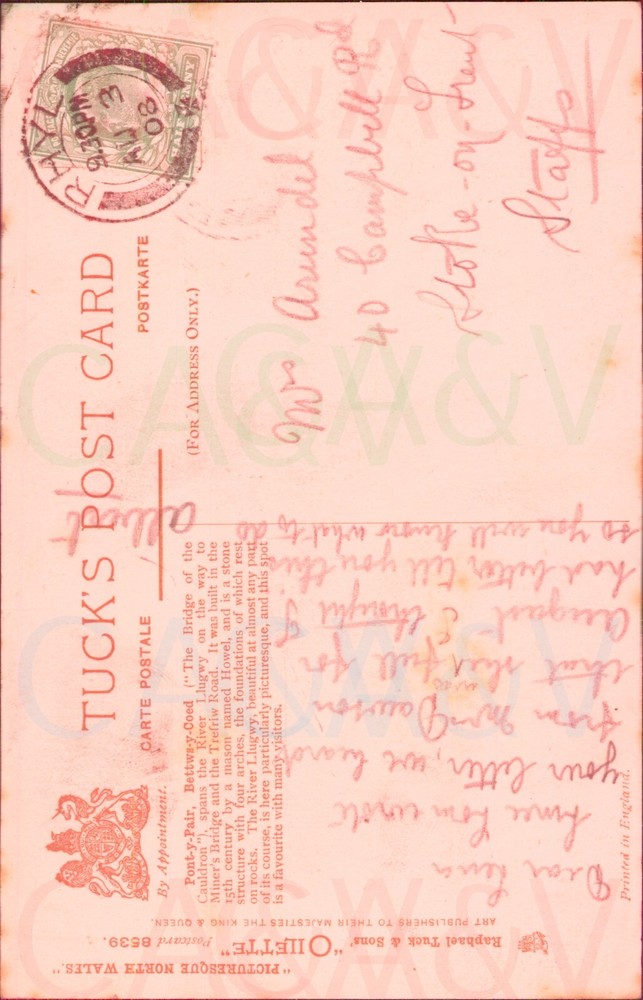 RHYL
9.30PM
AU 3
08
TUCK'S POST CARD
CARTE POSTALE
POSTKARTE
(FOR ADDRESS ONLY.)
By Appointment.
Pont-y-Pair, Bettws-y-Coed ("The Bridge of the
Cauldron"), spans the River Llugwy on the way to
Miner's Bridge and the Trefriw Road. It was built in the
15th century by a mason named Howel, and is a stone
structure with four arches, the foundations of which rest
on rocks. The River Llugwy, beautiful at almost any part
of its course, is here particularly picturesque, and this spot
is a favourite with many visitors.
Mrs Arundel
40 Campbell Rd
Stoke-on-Trent
Staffs
Dear Lena
Since Tom wrote
your letter, we heard
from Mrs Dawson
that she was full for
August & thought I
had better tell you this
so you will know what to do
Printed in England.
"PICTURESQUE NORTH WALES."
Raphael Tuck & Sons' "OILETTE" Postcard 8539.
ART PUBLISHERS TO THEIR MAJESTIES THE KING & QUEEN.
CA&V
CA&V
CA&V
CA&V
CA&V
CA&V
CA&V
CA&V